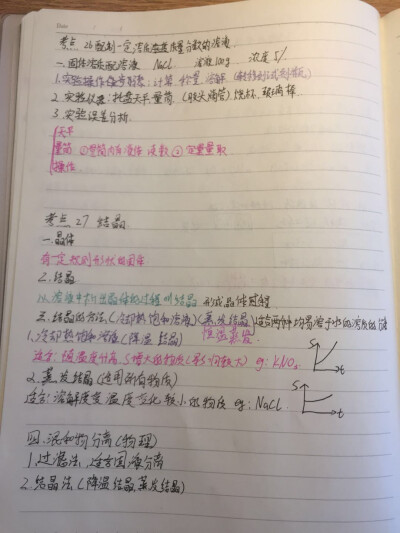 Date
考点 26 配制一定溶质质量分数的溶液
一.固体溶质配溶液 NaCl 溶液100g 浓度5%
1.实验操作 计算.称量.溶解
2.实验仪器:托盘天平.量筒.(胶头滴管)烧杯.玻璃棒
3.实验误差分析.
天平
量筒 ①量筒内有液体 读数 ② 定量量取
操作
考点 27 结晶
一.晶体
有一定规则形状的固体
2.结晶
从溶液中析出晶体的过程叫结晶 形成晶体过程
三.结晶的方法.(冷却热饱和溶液)(蒸发结晶)适合两种均易溶于水的
恒温蒸发
1.冷却热饱和溶液(降温结晶) S t
适合:随温度升高,S增大的物质 eg:KNO₃
2.蒸发结晶(适用所有物质) S
适合:溶解度受温度变化较小的物质 eg:NaCl. t
四.混和物分离(物理)
1.过滤法,适合固液分离
2.结晶法.(降温结晶.蒸发结晶)